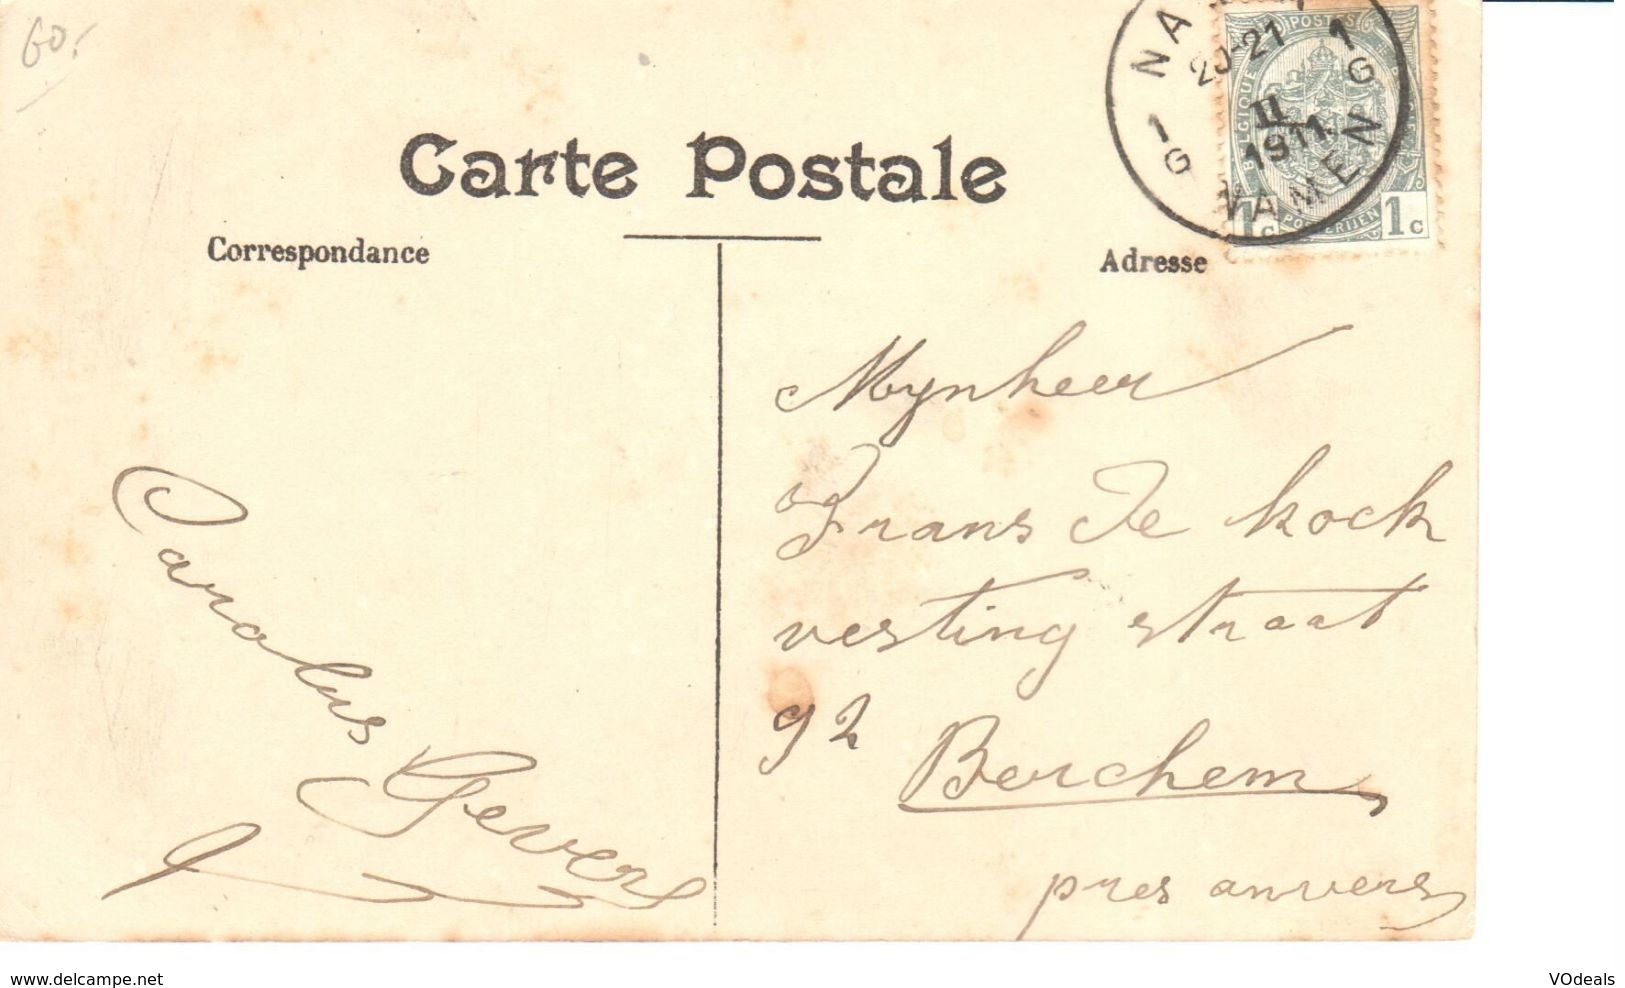 60.-
NA
20-21
1
G
II
1911
1
G
NAMEN
POSTES
1c
1c
Carte Postale
Correspondance
Adresse
Mynheer
Frans De Kock
vesting straat
92
Berchem
pres anvers
Carolus
Gevers
www.delcampe.net
VOdeals